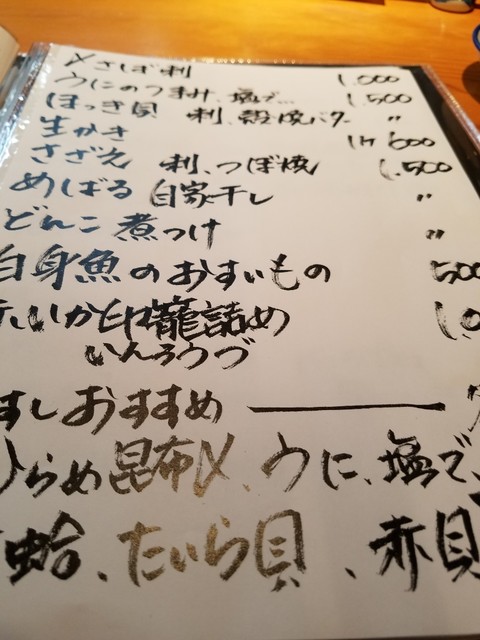 〆さば刺 1.000
うにのつまみ、塩で… 1.500
ほっき貝 刺、殻焼バター 〃
生かき 1ケ 600
さざえ 刺、つぼ焼 1.500
めばる 自家干し 〃
どんこ 煮つけ 〃
白身魚のおすいもの 500
いか印籠詰め 1.0
いんろうづ
すしおすすめ
ひらめ昆布〆、うに、塩で、
蛤、たいら貝、赤貝